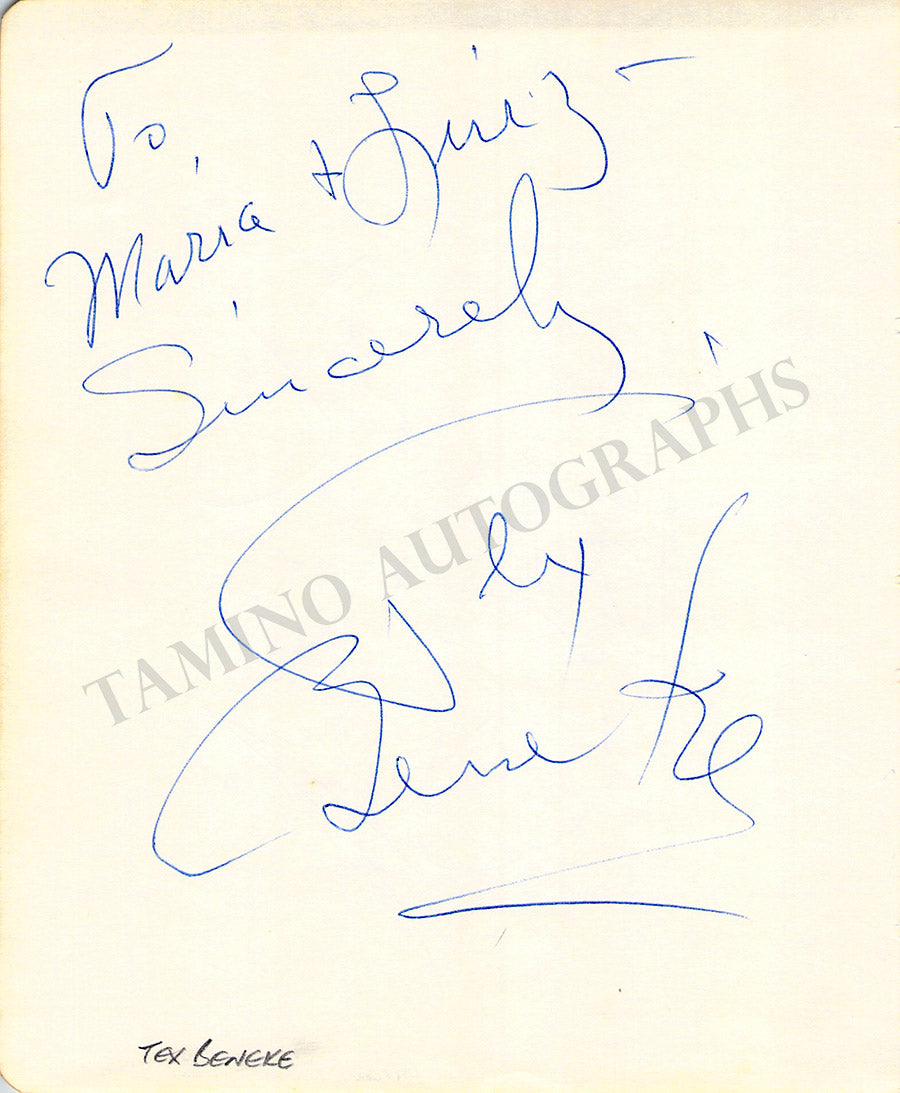 To,
Maria + Luiz —
Sincerely
Tex
Beneke
TAMINO AUTOGRAPHS
TEX BENEKE